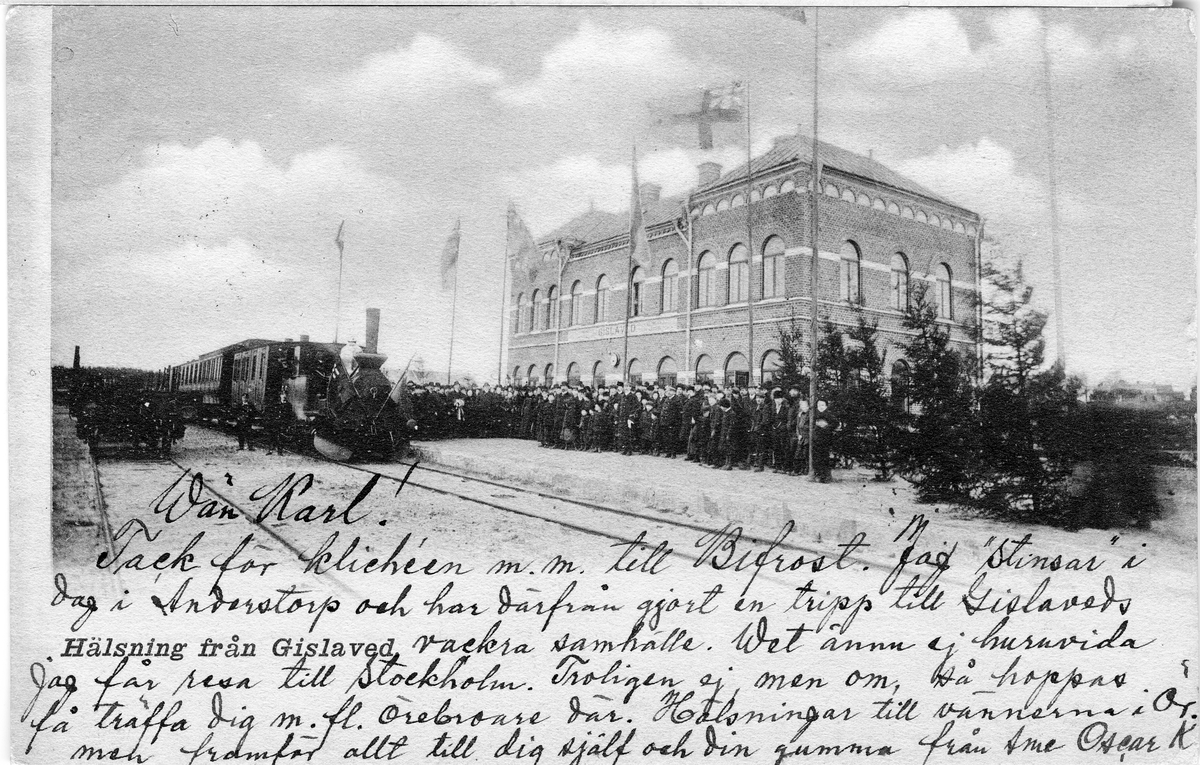 GISLAVED
Wän Karl!
Tack för klichéen m.m. till Bifrost. Jag "stinsar" i
dag i Anderstorp och har därifrån gjort en tripp till Gislaveds
Hälsning från Gislaved vackra samhälle. Wet ännu ej huruvida
jag får resa till Stockholm. Troligen ej, men om, så hoppas
få träffa dig m.fl. örebroare där. Hälsningar till vännerna i Ör.
men framför allt till dig själf och din gumma från Oscar K